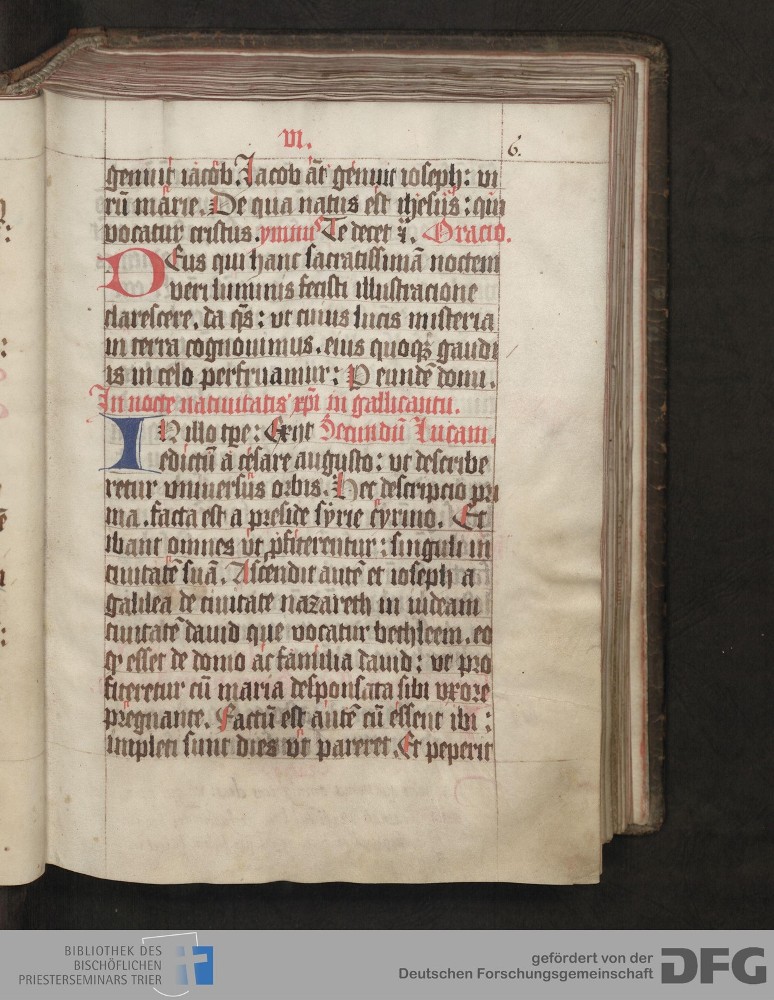 VI.
6.
genuit iacob. Jacob āt genuit ioseph: vi
rū marie. De qua natus est ihesus: qui
vocatur cristus. ymnus Te decet Oracio.
DEus qui hanc sacratissimā noctem
veri luminis fecisti illustracione
clarescere. da qs: vt cuius lucis misteria
in terra cognouimus. eius quoqz gaudi
is in celo perfruamur: P eundē donu.
In nocte natiuitatis xpi in gallicantu.
IN illo tpe: Exijt Secundū Lucam.
edictū a cesare augusto: vt describe
retur vniuersus orbis. Hec descripcio pri
ma. facta est a preside syrie cyrino. Et
ibant omnes vt pfiterentur: singuli in
ciuitatē suā. Ascendit autē et ioseph a
galilea de ciuitate nazareth in iudeam
ciuitatē dauid que vocatur bethleem. eo
qz esset de domo ac familia dauid: vt pro
fiteretur cū maria desponsata sibi vxore
pregnante. Factū est autē cū essent ibi:
impleti sunt dies vt pareret. Et peperit
BIBLIOTHEK DES
BISCHÖFLICHEN
PRIESTERSEMINARS TRIER
gefördert von der
Deutschen Forschungsgemeinschaft DFG